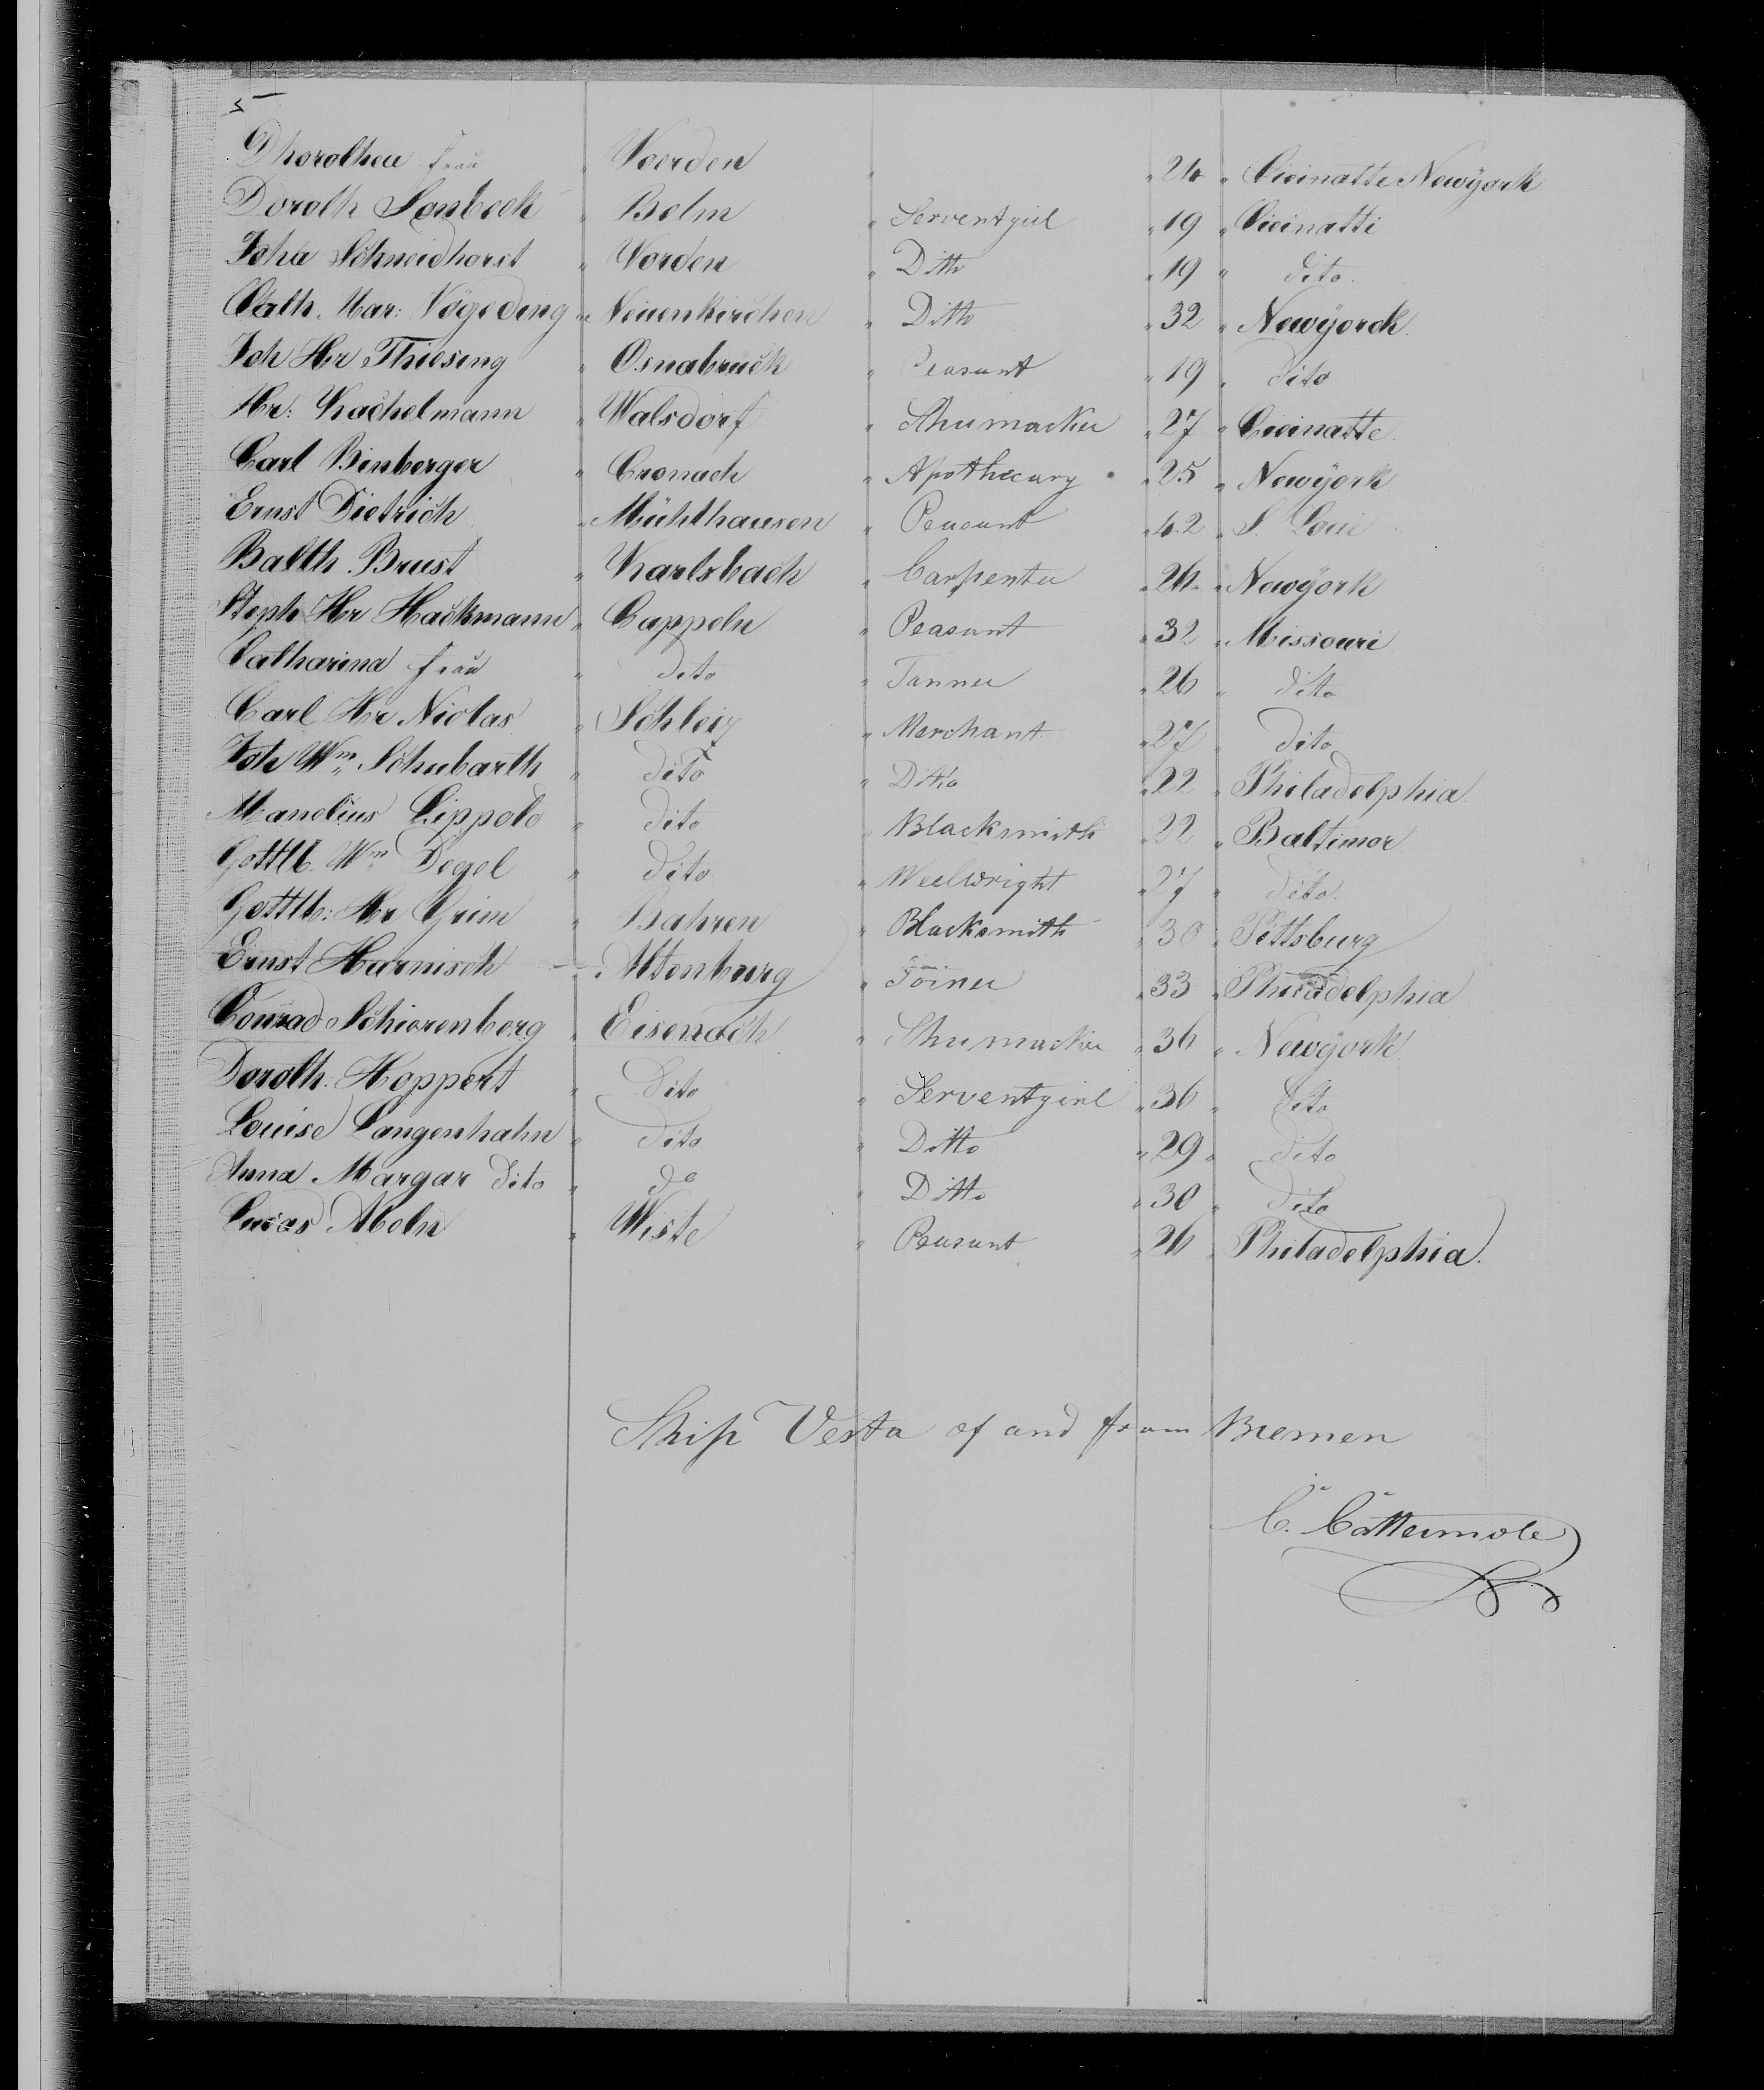 5
Dhorothea frau " Voerden " " 24 " Cicinatte Newÿork
Doroth Sanbeck " Belm " Serventgirl " 19 " Cicinatti
Joha Schneidhorst " Vorden " Ditto " 19 " dito
Cath. Mar: Vögeding " Neuenkirchen " Ditto " 32 " Newÿorck
Joh Hr Thiesing " Osnabrück " Peasant " 19 " dito
Hr: Kachelmann " Walsdorf " Shumacker " 27 " Cicinatte
Carl Binberger " Cronach " Apothecary " 25 " Newÿork
Ernst Dietrich " Mühlhausen " Peasant " 42 " S. Loui
Balth Brust " Karlsbach " Carpenter " 24 " Newÿork
Steph Hr Hackmann " Cappeln " Peasant " 32 " Missouri
Catharina frau " dito " Tanner " 26 " dito
Carl Hr Niclas " Schleiz " Merchant " 27 " dito
Joh Wm Schubarth " dito " Ditto " 22 " Philadelphia
Manelius Lippold " dito " Blacksmith " 22 " Baltimor
Gottlb. Wm Degel " dito " Weelwright " 27 " dito
Gottlb: Hr Grim " Bahren " Blacksmith " 30 " Pittsburg
Ernst Harnisch " Altenburg " Joiner " 33 " Philadelphia
Conrad Schierenberg " Eisenach " Shumacker " 36 " Newÿork
Doroth. Hoppert " Dito " Serventgirl " 36 " dito
Louise Langenhahn " dito " Ditto " 29 " dito
Anna Margar dito " do " Ditto " 30 " dito
Lucas Abeln " Wiste " Peasant " 26 " Philadelphia.
Ship Vesta of and from Bremen
C. Cattermole